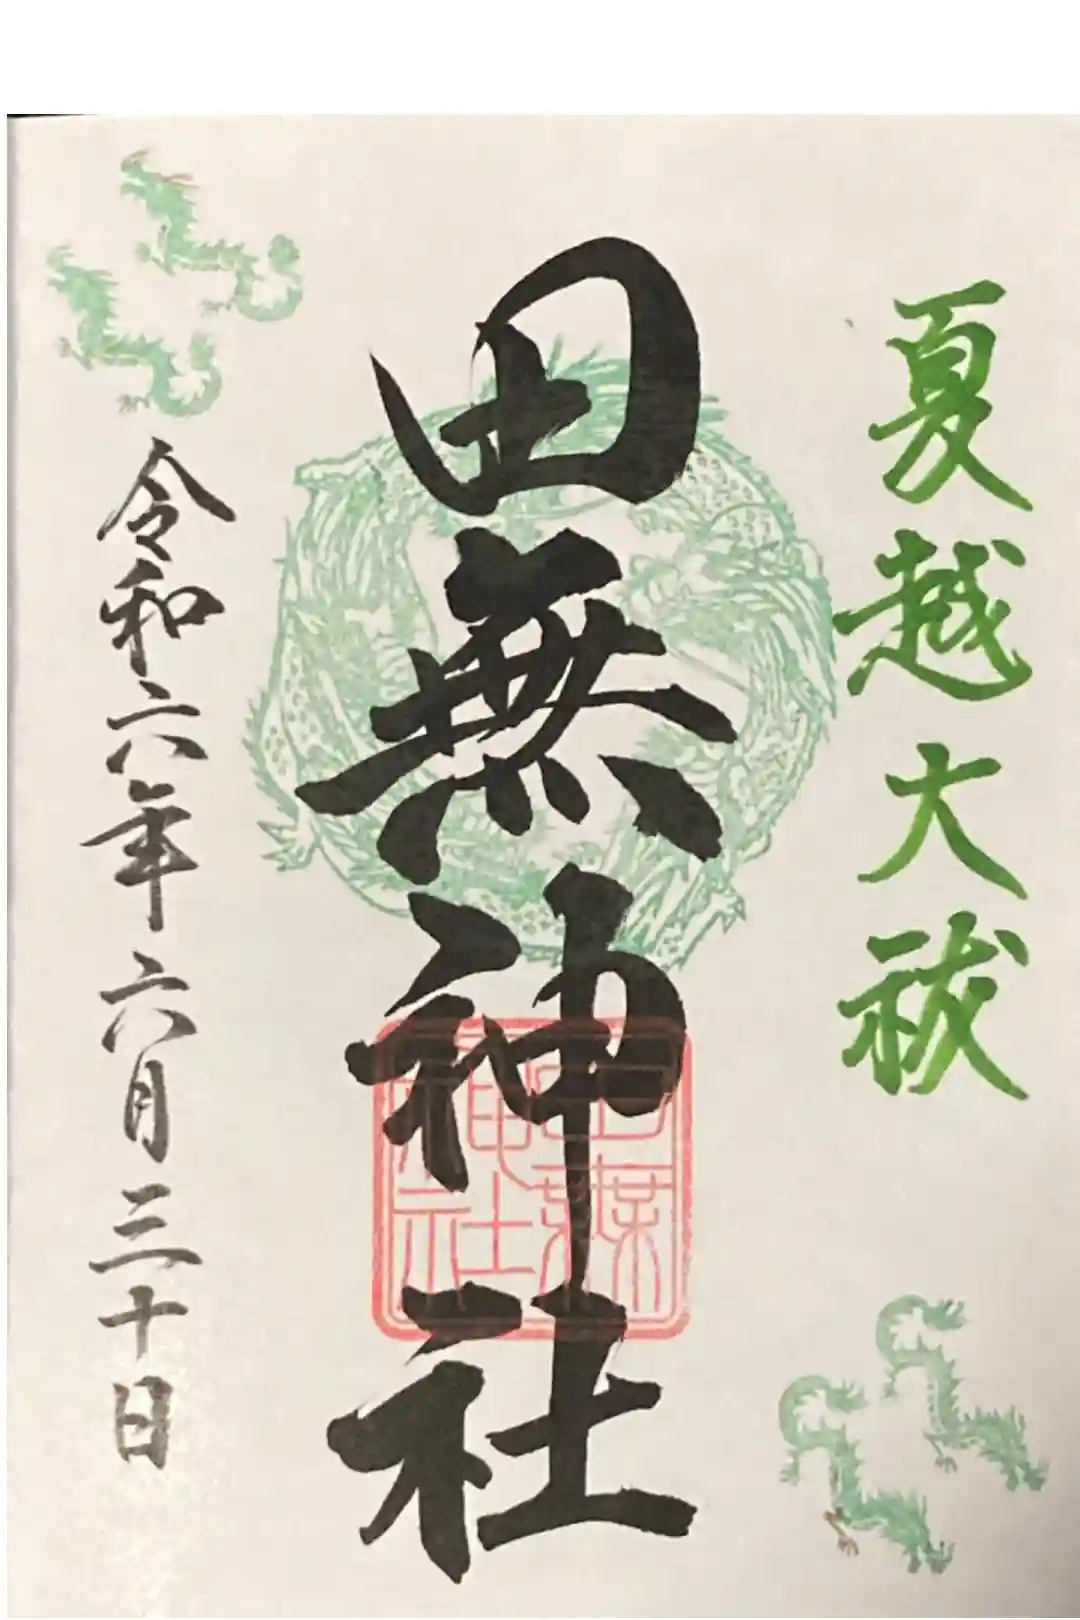 夏越大祓
田無神社
令和六年六月三十日
田無神社